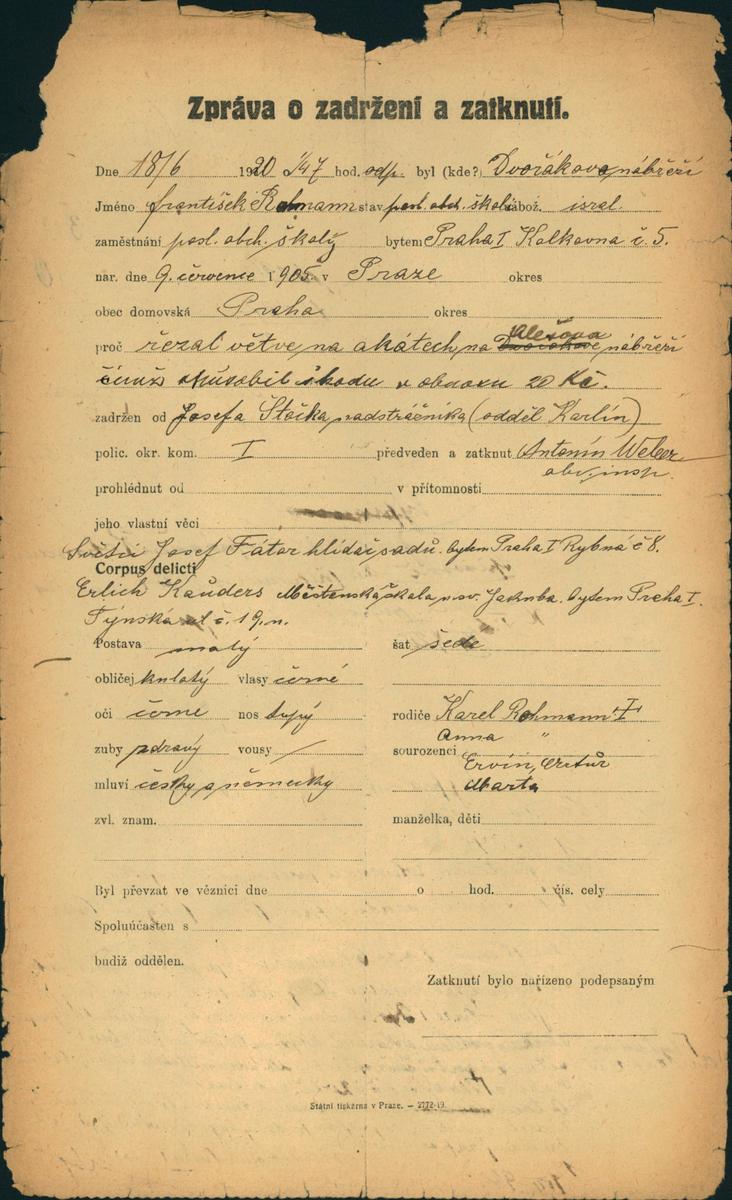 Zpráva o zadržení a zatknutí.
Dne 18/6 1920 1/47 hod. odp. byl (kde?) Dvořákovo nábřeží
Jméno František Rohmann stav posl. obch. školy nábož. isral.
zaměstnání posl. obch. školy bytem Praha I Kolkovna č. 5.
nar. dne 9. července 1905 v Praze okres
obec domovská Praha okres
proč řezal větve na akátech na Dvořákově Alešova nábřeží
čímž způsobil škodu v obnosu 20 Kč.
zadržen od Josefa Štočka nadstrážníka (odděl Karlín)
polic. okr. kom. I předveden a zatknut Antonín Weber
obv. insp.
prohlédnut od v přítomnosti
jeho vlastní věci
Svědci Josef Fátor hlídač sadů. bytem Praha I Rybná č 8.
Corpus delicti
Erlich Kauders Měšťanská škola u sv. Jakuba. bytem Praha I.
Týnská ul č. 19. n.
Postava malý šat šedé
obličej kulatý vlasy černé
oči černé nos tupý rodiče Karel Rohmann
Anna "
zuby zdravý vousy / sourozenci Ervín, Artur
mluví česky a německy Marta
zvl. znam. manželka, děti
Byl převzat ve věznici dne o hod. čís. cely
Spoluúčasten s
budiž oddělen.
Zatknutí bylo nařízeno podepsaným
Státní tiskárna v Praze. — 2772-19.